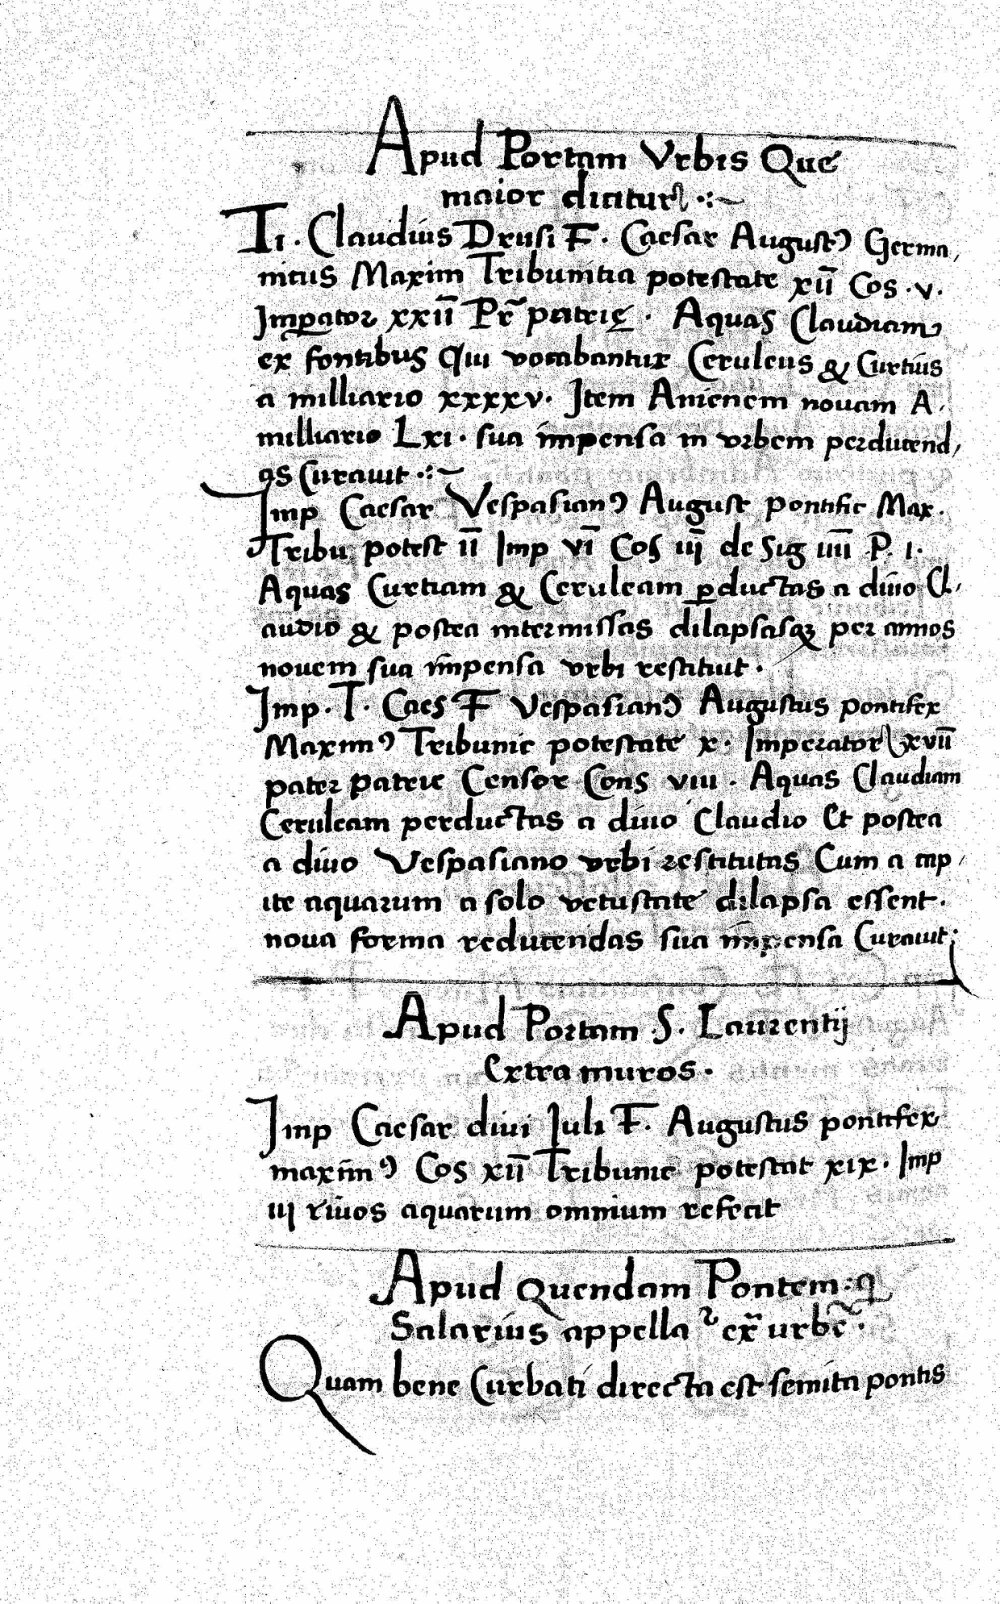 Apud Portam Vrbis Que
maior dicitur
Ti. Claudius Drusi F. Caesar August9 Germa
nicus Maxim Tribunitia potestate xii Cos .v.
Imperator xxii Pr̃ patrię . Aquas Claudiam
ex fontibus Qui vocabantur Ceruleus & Curtius
a milliario xxxxv. Item Anienem nouam A.
milliario Lxi. sua impensa in vrbem perducend
as Curauit
Imp Caesar Vespasian9 August pontific Max.
Tribu. potest ii Imp vi Cos iij de Sig iiii P. I.
Aquas Curtiam & Ceruleam perductas a diuo Cl
audio & postea intermissas dilapsasq per annos
nouem sua impensa vrbi restituit .
Imp. T. Caes F Vespasian9 Augustus pontifex
Maxim9 Tribunic potestate x. Imperator xvii
pater patrie Censor Cons viii . Aquas Claudiam
Ceruleam perductas a diuo Claudio Et postea
a diuo Vespasiano vrbi restitutas Cum a cap
ite aquarum a solo vetustate dilapsa essent.
noua forma reducendas sua impensa Curauit
Apud Portam .S. Laurentij
Extra muros .
Imp Caesar diui Iuli F. Augustus pontifex
maxim9 Cos xii Tribunic potestat xix. Imp
iij riuos aquarum omnium refecit
Apud Quendam Pontem: q
Salarius appella2 ex urbe .
Quam bene Curbati directa est semita pontis